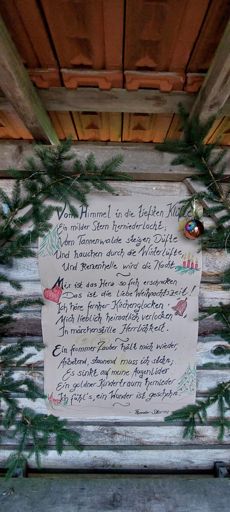 Vom Himmel in die tiefsten Klüfte
Ein milder Stern herniederlacht,
Vom Tannenwalde steigen Düfte
Und hauchen durch die Winterlüfte
Und kerzenhelle wird die Nacht.
Mir ist das Herz so froh erschrocken
Das ist die liebe Weihnachtszeit!
Ich höre ferner Kirchenglocken
Mich lieblich heimatlich verlocken
In märchenstille Herrlichkeit.
Ein frommer Zauber hält mich wieder,
Anbetend, staunend muss ich stehn;
Es sinkt auf meine Augenlider
Ein goldner Kindertraum hernieder
Ich fühl's, ein Wunder ist geschehn.
- Theodor Storm